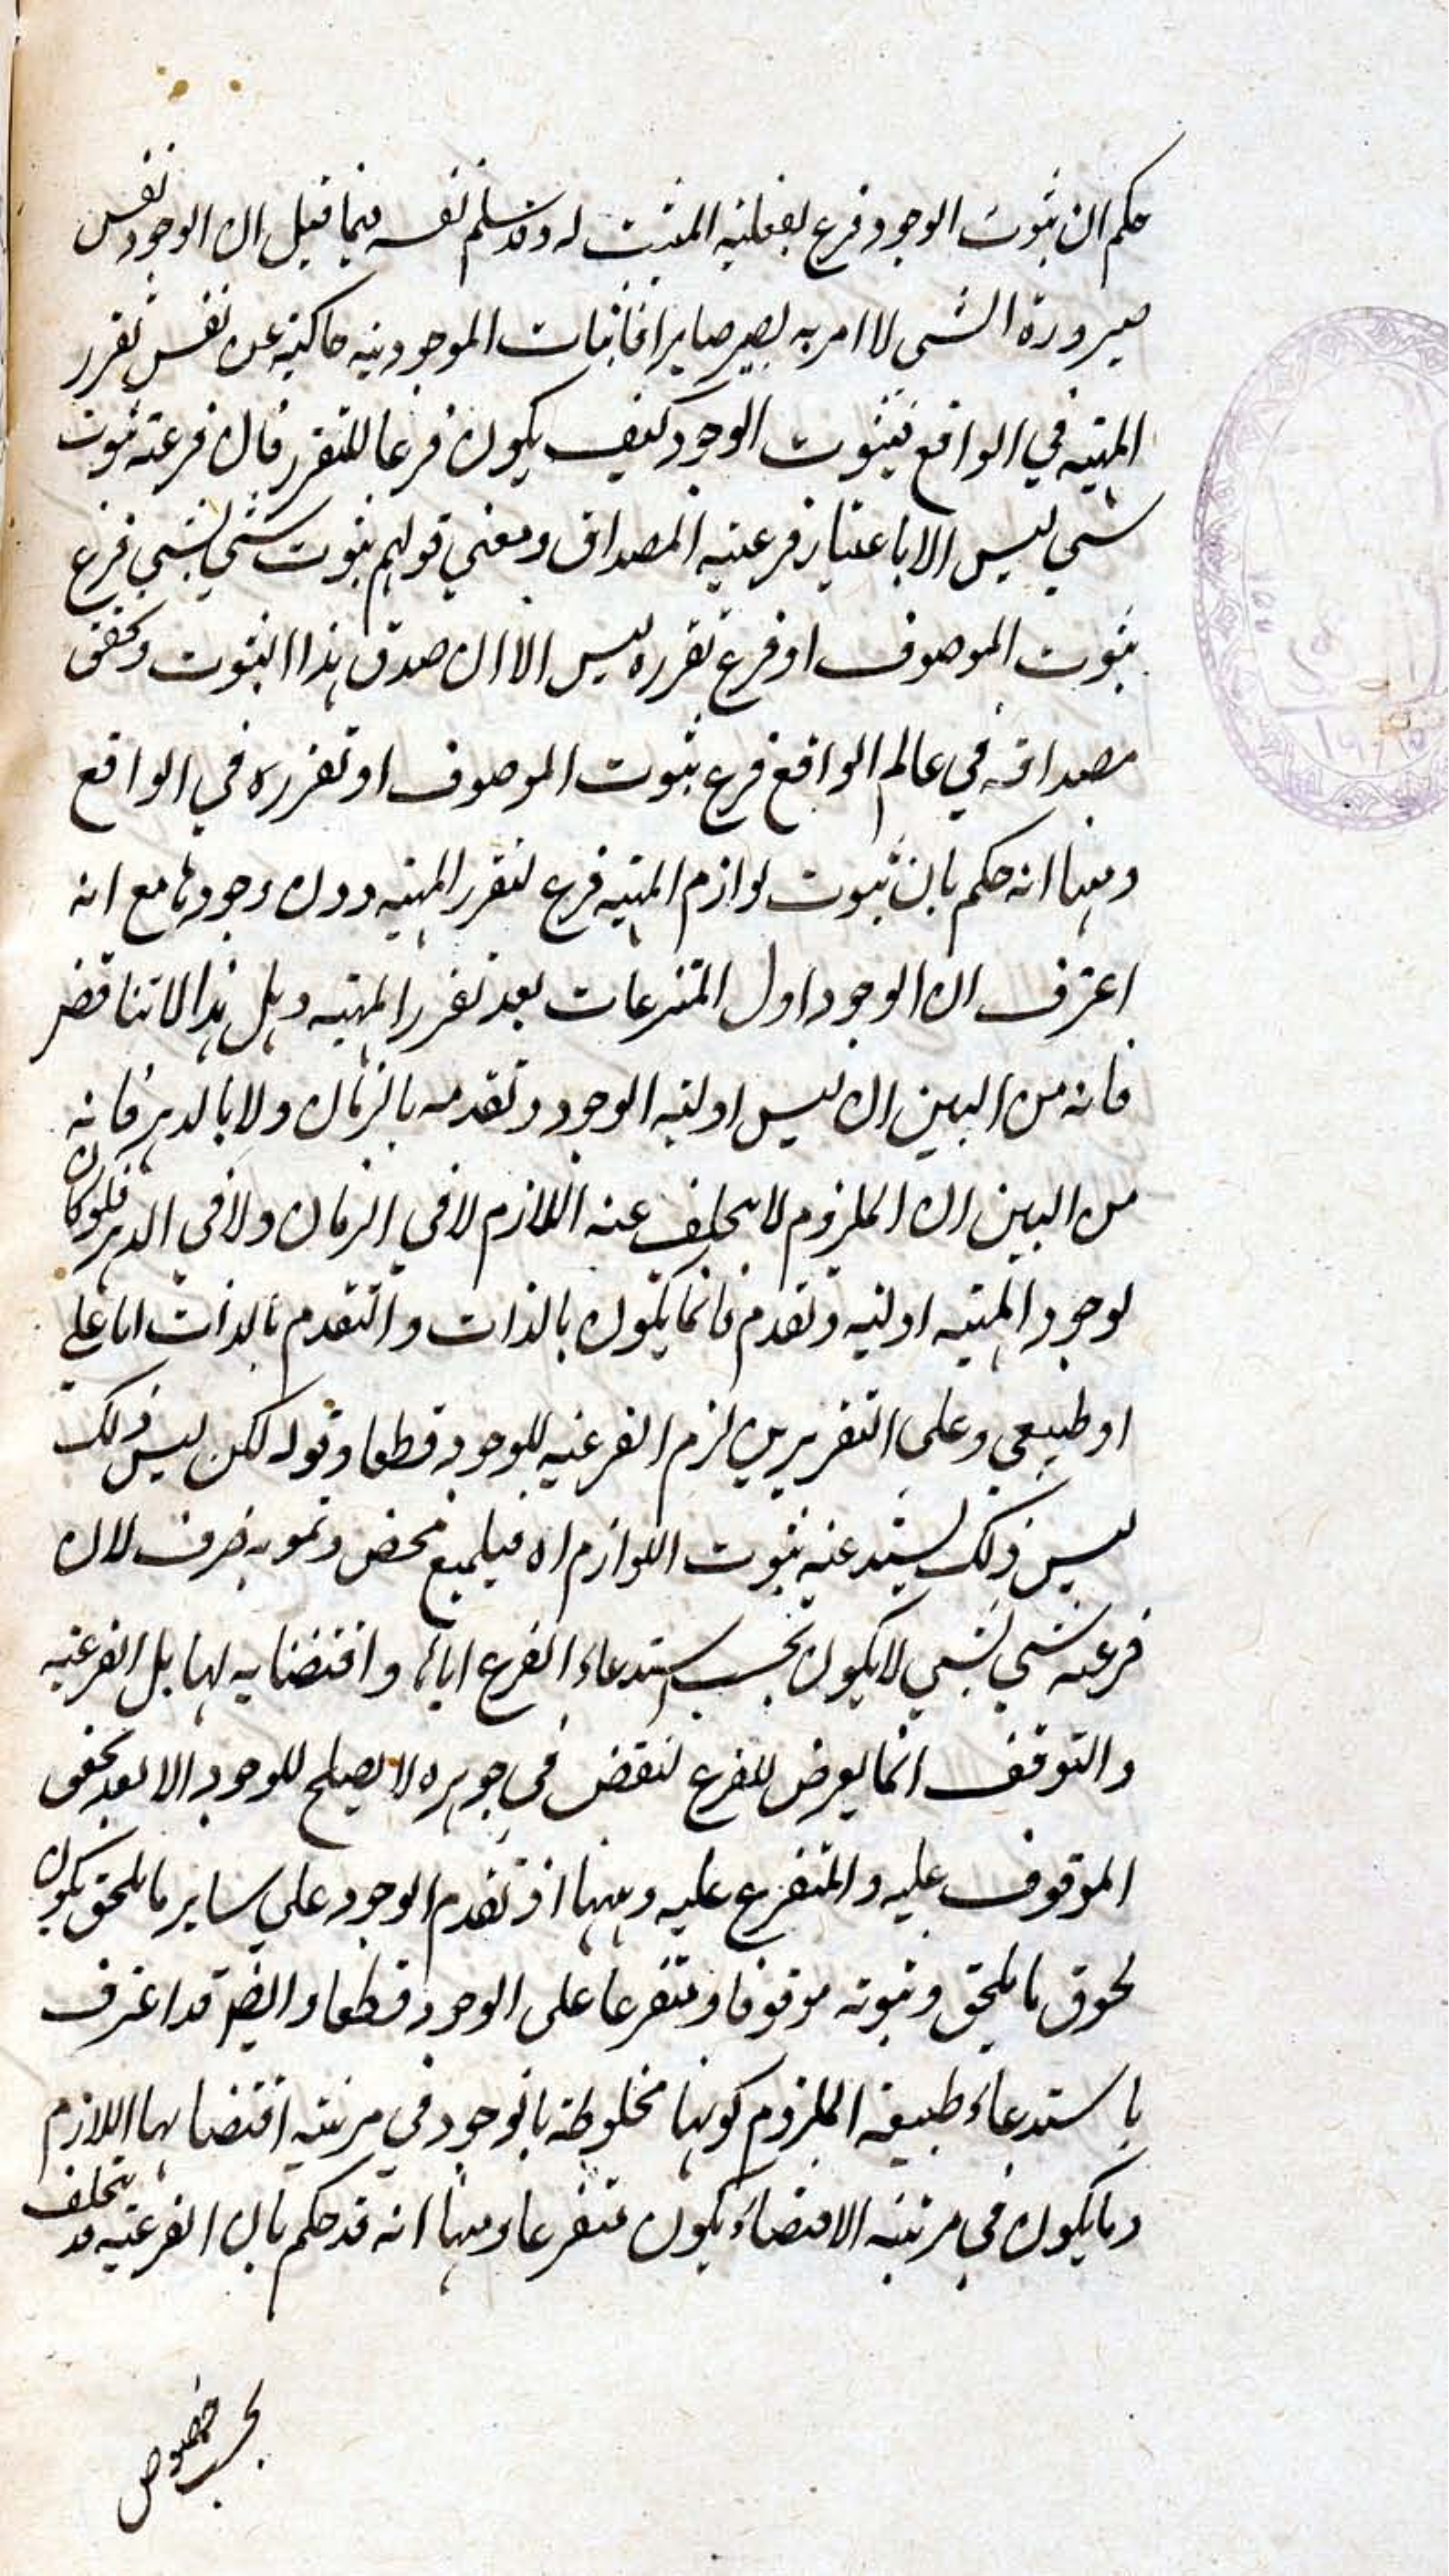 حكم ان ثبوت الوجود فرع لفعلية المثبت له وقد سلم نفسه فيما قبل ان الوجود نفس
صيرورة الشي لا امر به يصير صايرا فاثبات الموجودية حاكية عن نفس تقرر
المهية في الواقع فثبوت الوجود كيف يكون فرعا للتقرر فان فرعية ثبوت
شي ليس الا باعتبار فرعية المصداق ومعني قولهم ثبوت شي لشي فرع
ثبوت الموصوف او فرع تقرره ليس الا ان صدق هذا الثبوت وتحقق
مصداقه في عالم الواقع فرع ثبوت الموصوف او تقرره في الواقع
ومنها انه حكم بان ثبوت لوازم المهية فرع لتقرر المهية دون وجودها مع انه
اعترف ان الوجود اول المنتزعات بعد تقرر المهية وهل هذا الا تناقض
فانه من البين ان ليس اولية الوجود وتقدمه بالزمان ولا بالدهر فانه
من البين ان الملزوم لا يتخلف عنه اللازم لا في الزمان ولا في الدهر فلو كان
لوجود المهية اولية وتقدم فانما يكون بالذات والتقدم بالذات اما علي
او طبيعي وعلى التقريرين لزم الفرعية للوجود قطعا وقوله لكن ليس ذلك
ليس ذلك يستدعيه ثبوت اللوازم اه محض وتمويه صرف لان
فرعية شي لشي لا يكون بحسب استدعاء الفرع اياها واقتضايه لها بل الفرعية
والتوقف انما يعرض للفرع لنقص في جوهره لا يصلح للوجود الا بعد تحقق
الموقوف عليه والمتفرع عليه وههنا اذ تقدم الوجود على ساير ما يلحق يكون
لحوق ما يلحق وثبوته موقوفا ومتفرعا على الوجود قطعا وايضا قد اعترف
باستدعاء طبيعة الملزوم كونها مخلوطة بالوجود في مرتبة اقتضايها اللازم
وما يكون في مرتبة الاقتضاء يكون متفرعا ومنها انه قد حكم بان الفرعية قد يتخلف
بحسب خصوص